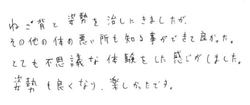 ねこ背と姿勢を治しにきましたが、
その他の体の悪い所も知る事ができて良かった。
とても不思議な体験をした感じがしました。
姿勢も良くなり、楽しかったです。